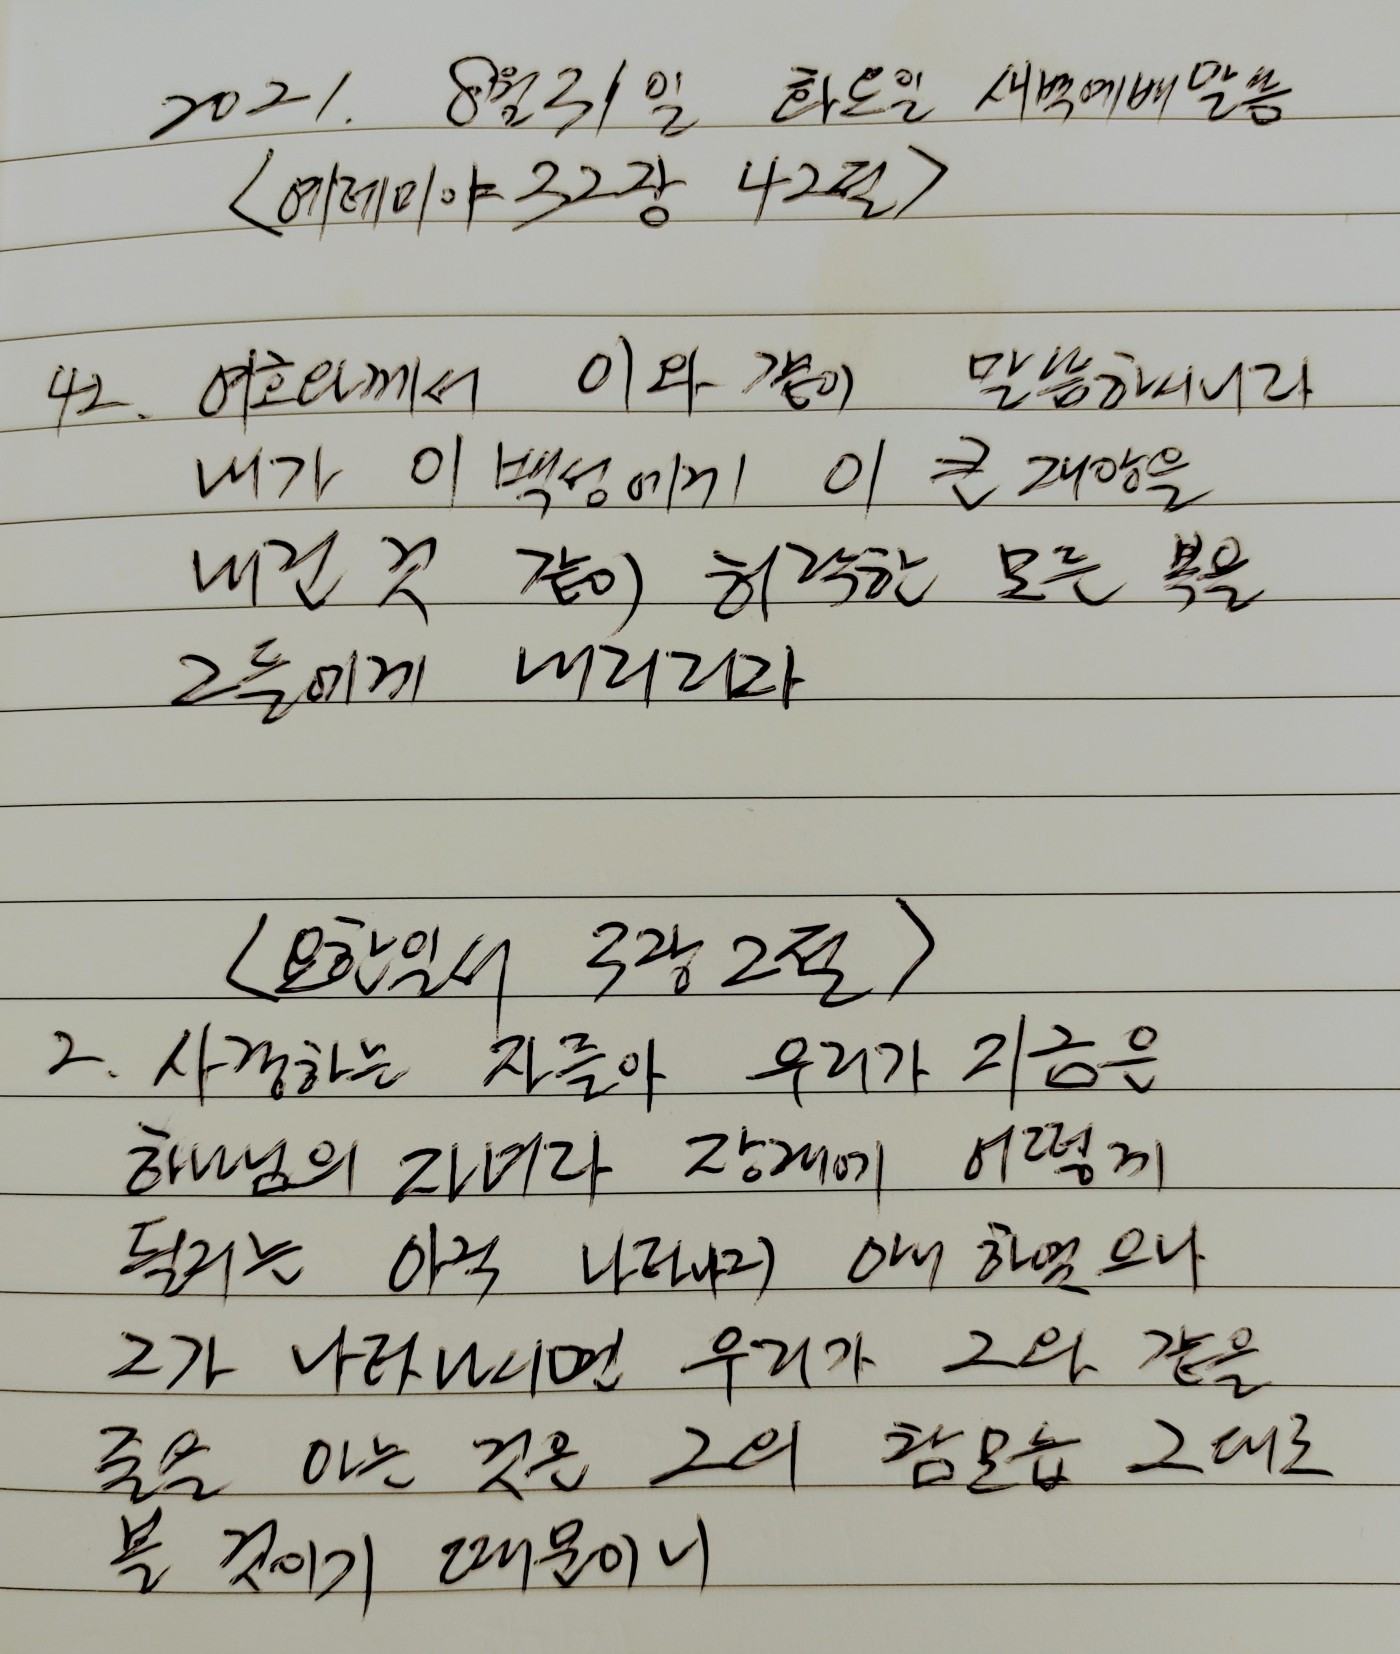 2021. 8월31일 화요일 새벽예배말씀
<예레미야 32장 42절>
42. 여호와께서 이와 같이 말씀하시니라
내가 이 백성에게 이 큰 재앙을
내린 것 같이 허락한 모든 복을
그들에게 내리리라
<요한일서 3장 2절>
2. 사랑하는 자들아 우리가 지금은
하나님의 자녀라 장래에 어떻게
될지는 아직 나타나지 아니 하였으나
그가 나타나시면 우리가 그와 같을
줄을 아는 것은 그의 참모습 그대로
볼 것이기 때문이니